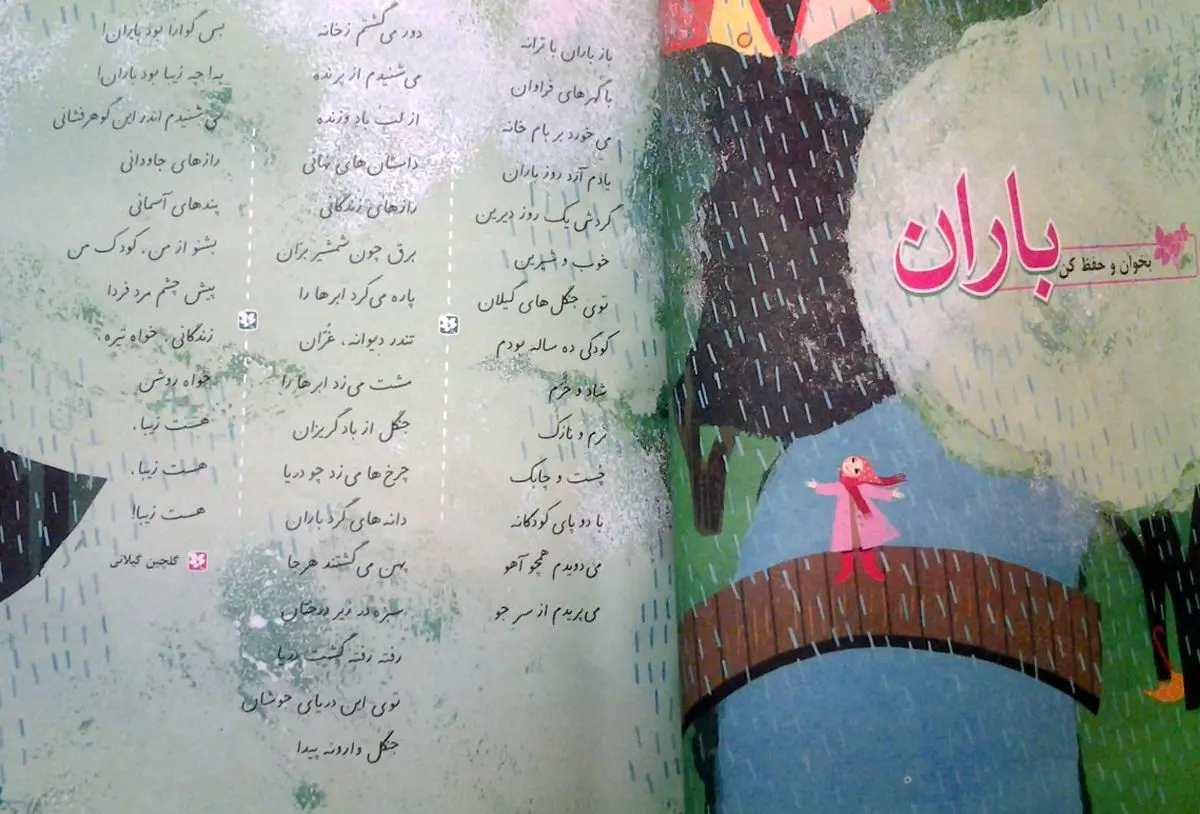 بخوان و حفظ کن
باران
باز باران با ترانه
با گهرهای فراوان
می‌خورد بر بام خانه
یادم آرد روز باران
گردش یک روز دیرین
خوب و شیرین
توی جنگل‌های گیلان
کودکی ده ساله بودم
شاد و خرّم
نرم و نازک
چست و چابک
با دو پای کودکانه
می‌دویدم همچو آهو
می‌پریدم از سر جو
دور می‌گشتم ز خانه
می‌شنیدم از پرنده
از لب باد وزنده
داستان‌های نهانی
رازهای زندگانی
برق چون شمشیر برّان
پاره می‌کرد ابرها را
تندر دیوانه، غرّان
مشت می‌زد ابرها را
جنگل از باد گریزان
چرخ‌ها می‌زد چو دریا
دانه‌های گرد باران
پهن می‌گشتند هرجا
سبزه در زیر درختان
رفته رفته گشت دریا
توی این دریای جوشان
جنگل وارونه پیدا
بس گوارا بود باران!
به! چه زیبا بود باران!
می‌شنیدم اندر این گوهرفشانی
رازهای جاودانی
پندهای آسمانی
بشنو از من، کودک من
پیش چشم مرد فردا
زندگانی، خواه تیره،
خواه روشن
هست زیبا،
هست زیبا،
هست زیبا!
گلچین گیلانی